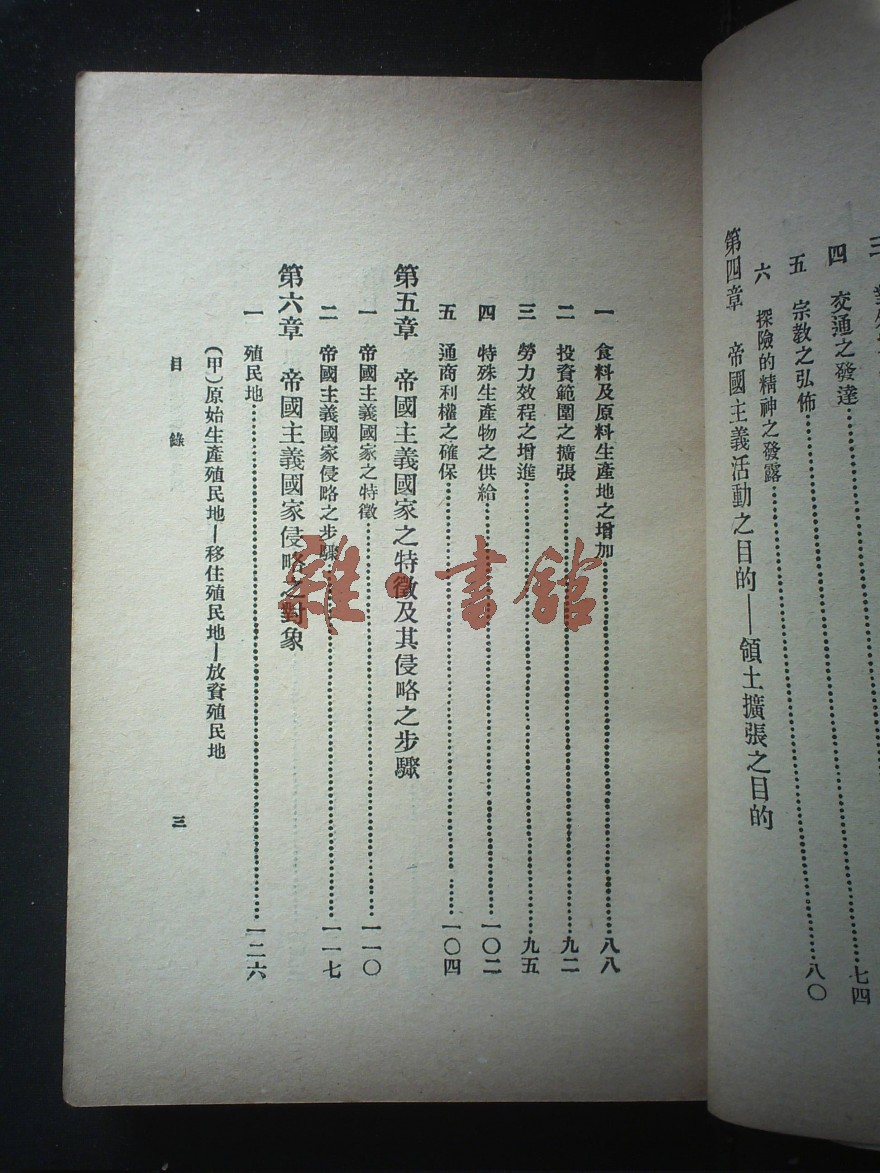 三
四 交通之發達……七四
五 宗教之弘佈……八〇
六 探險的精神之發露
第四章 帝國主義活動之目的—領土擴張之目的
一 食料及原料生產地之增加……八八
二 投資範圍之擴張……九二
三 勞力效程之增進……九五
四 特殊生產物之供給……一〇二
五 通商利權之確保……一〇四
第五章 帝國主義國家之特徵及其侵略之步驟
一 帝國主義國家之特徵……一一〇
二 帝國主義國家侵略之步驟……一一七
第六章 帝國主義國家侵略之對象
一 殖民地……一二六
(甲)原始生產殖民地—移住殖民地—放資殖民地
目錄 三
雜·書館